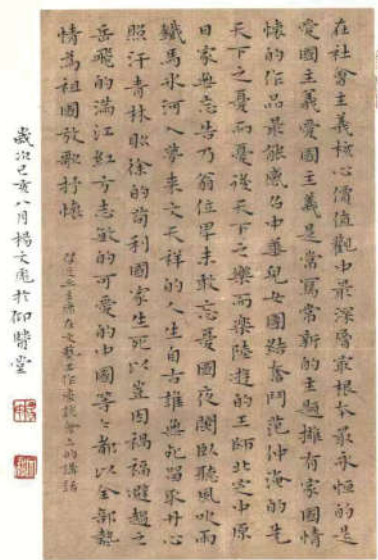 在社會主義核心價值觀中最深層最根本最永恒的是
愛國主義愛國主義是常寫常新的主題擁有家國情
懷的作品最能感召中華兒女團結奮鬥范仲淹的先
天下之憂而憂後天下之樂而樂陸遊的王師北定中原
日家無忘告乃翁位卑未敢忘憂國夜闌臥聽風吹雨
鐵馬氷河入夢来文天祥的人生自古誰無死留取丹心
照汗青林則徐的苟利國家生死以豈因禍福避趨之
岳飛的滿江紅方志敏的可愛的中國等等都以全部熱
情為祖國放歌抒懷
在文藝工作座談會上的講話
歲次己亥八月楊文 於仰 堂